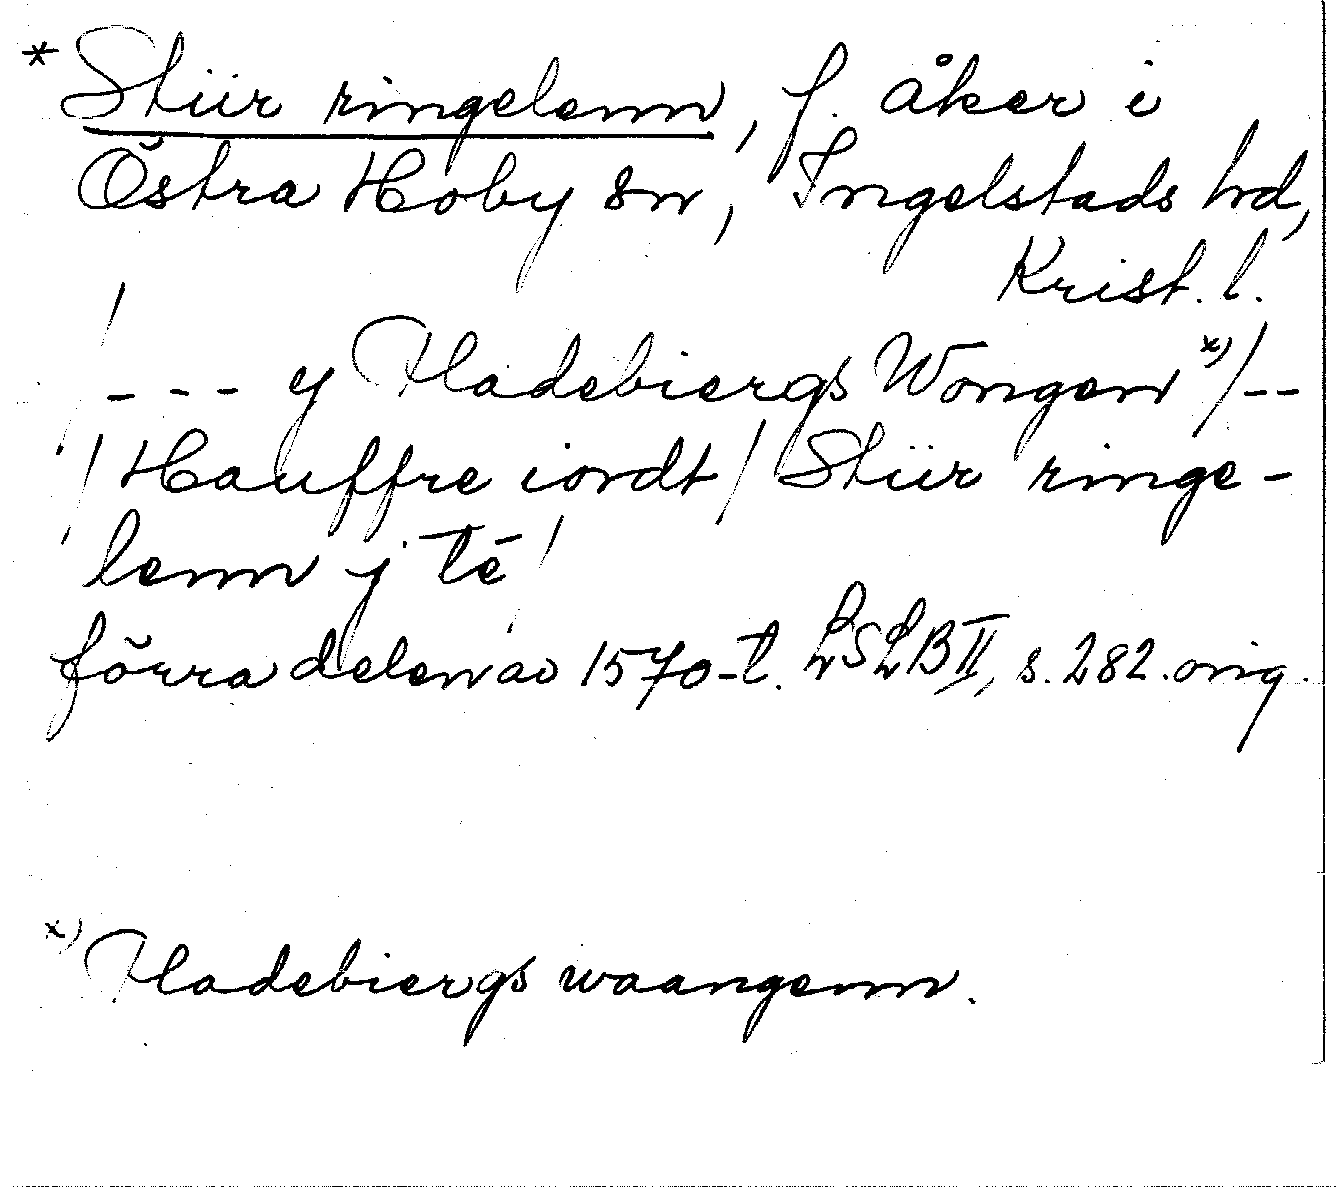 * Stiir ringelenn, f. åker i
Östra Hoby sn, Ingelstads hd,
Krist. l.
/ --- y Fladebiergs Wongen x) / --
/ Hauffre iordt / Stiir ringe-
lenn j té /
förra delen av 1570-t. LSLB II, s. 282. orig.
x) Fladebiergs waangenn.